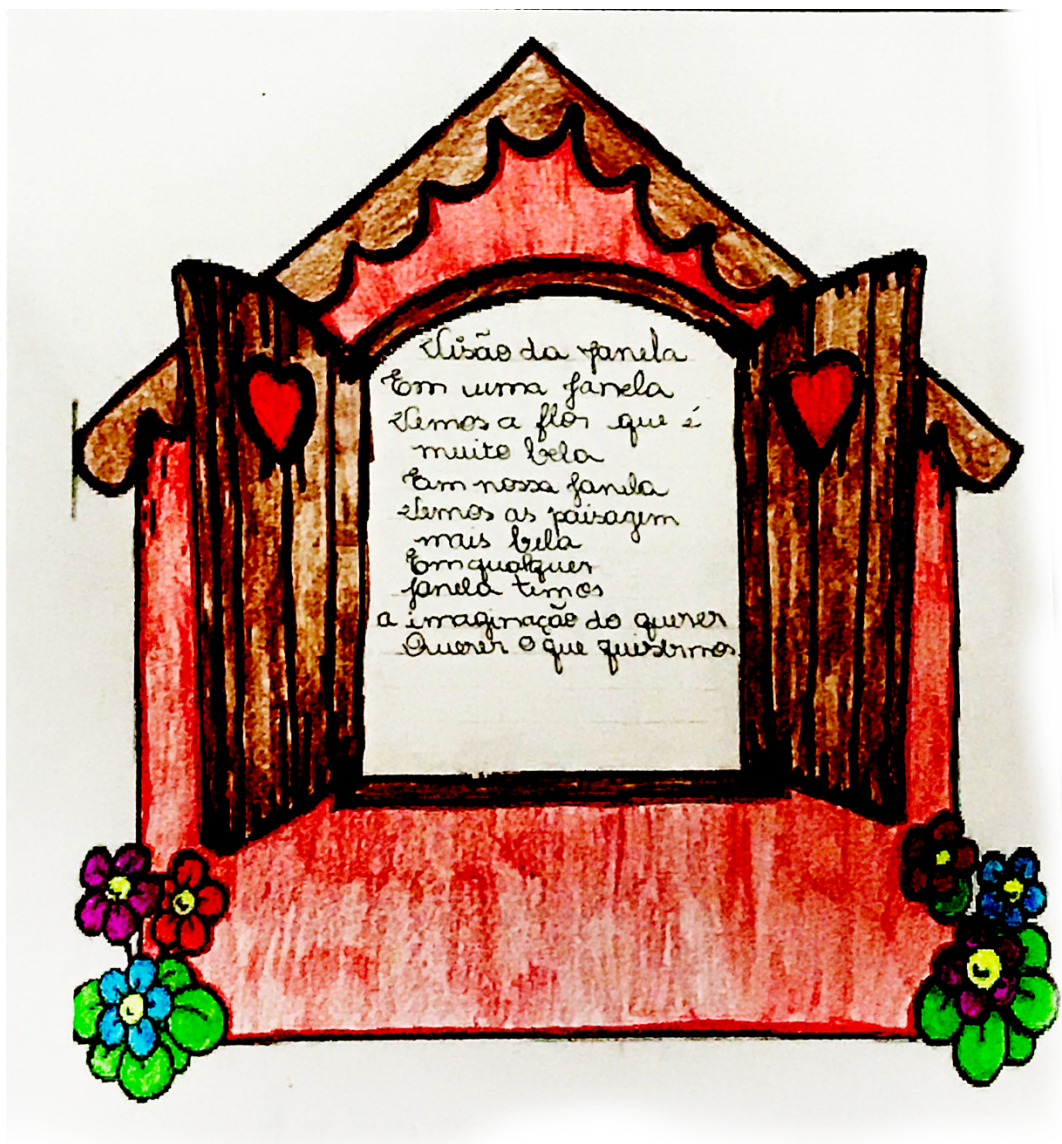 Visão da janela
Em uma janela
Vemos a flor que é
muito bela
Em nossa janela
Vemos as paisagem
mais bela
Em qualquer
janela temos
a imaginação do querer
Querer o que quisermos